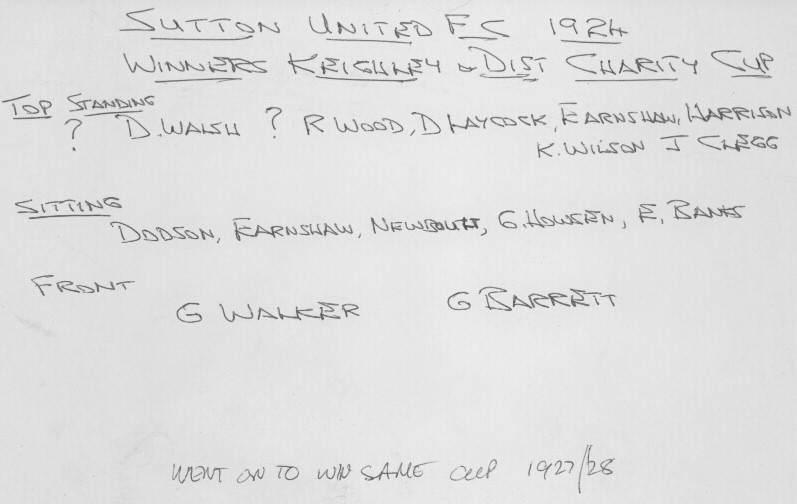 SUTTON UNITED F C 1924
WINNERS KEIGHLEY & DIST CHARITY CUP
TOP STANDING
? D. WALSH ? R WOOD, D LAYCOCK, EARNSHAW, HARRISON
K. WILSON J CLEGG
SITTING
DODSON, EARNSHAW, NEWBOULT, G. HOWSEN, E. BANKS
FRONT
G WALKER G BARRETT
WENT ON TO WIN SAME CUP 1927/28